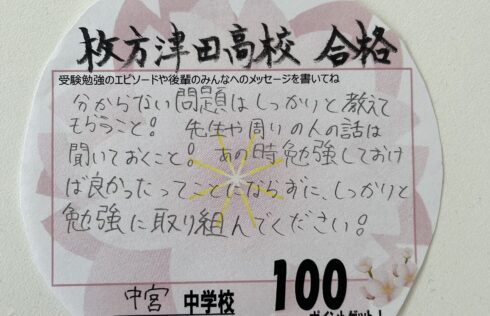 枚方津田高校 合格
受験勉強のエピソードや後輩のみんなへのメッセージを書いてね
分からない問題はしっかりと教えて
もらうこと! 先生や周りの人の話は
聞いておくこと! あの時勉強しておけ
ば良かったってことにならずに、しっかりと
勉強に取り組んでください!
中宮 中学校 100
ポイントゲット!